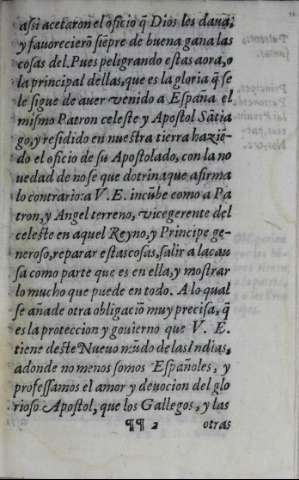 assi acetaron el oficio q̃ Dios les dava;
y favorecierõ siẽpre de buena gana las
cosas del. Pues peligrando estas aora, o
la principal dellas, que es la gloria q̃ se
le sigue de aver venido a España el
mismo Patron celeste y Apostol Sãtia
go, y residido en nuestra tierra haziẽ-
do el oficio de su Apostolado, con la no
vedad de no se que dotrina que afirma
lo contrario: a V. E. incũbe como a Pa
tron, y Angel terreno, vicegerente del
celeste en aquel Reyno, y Principe ge-
neroso, reparar estas cosas, salir a la cau
sa como parte que es en ella, y mostrar
lo mucho que puede en todo. A lo qual
se añade otra obligaciõ muy precisa, q̃
es la proteccion y govierno que V. E.
tiene deste Nuevo mũdo de las Indias,
adonde no menos somos Españoles, y
professamos el amor y devocion del glo
rioso Apostol, que los Gallegos, y las
¶¶ 2 otras